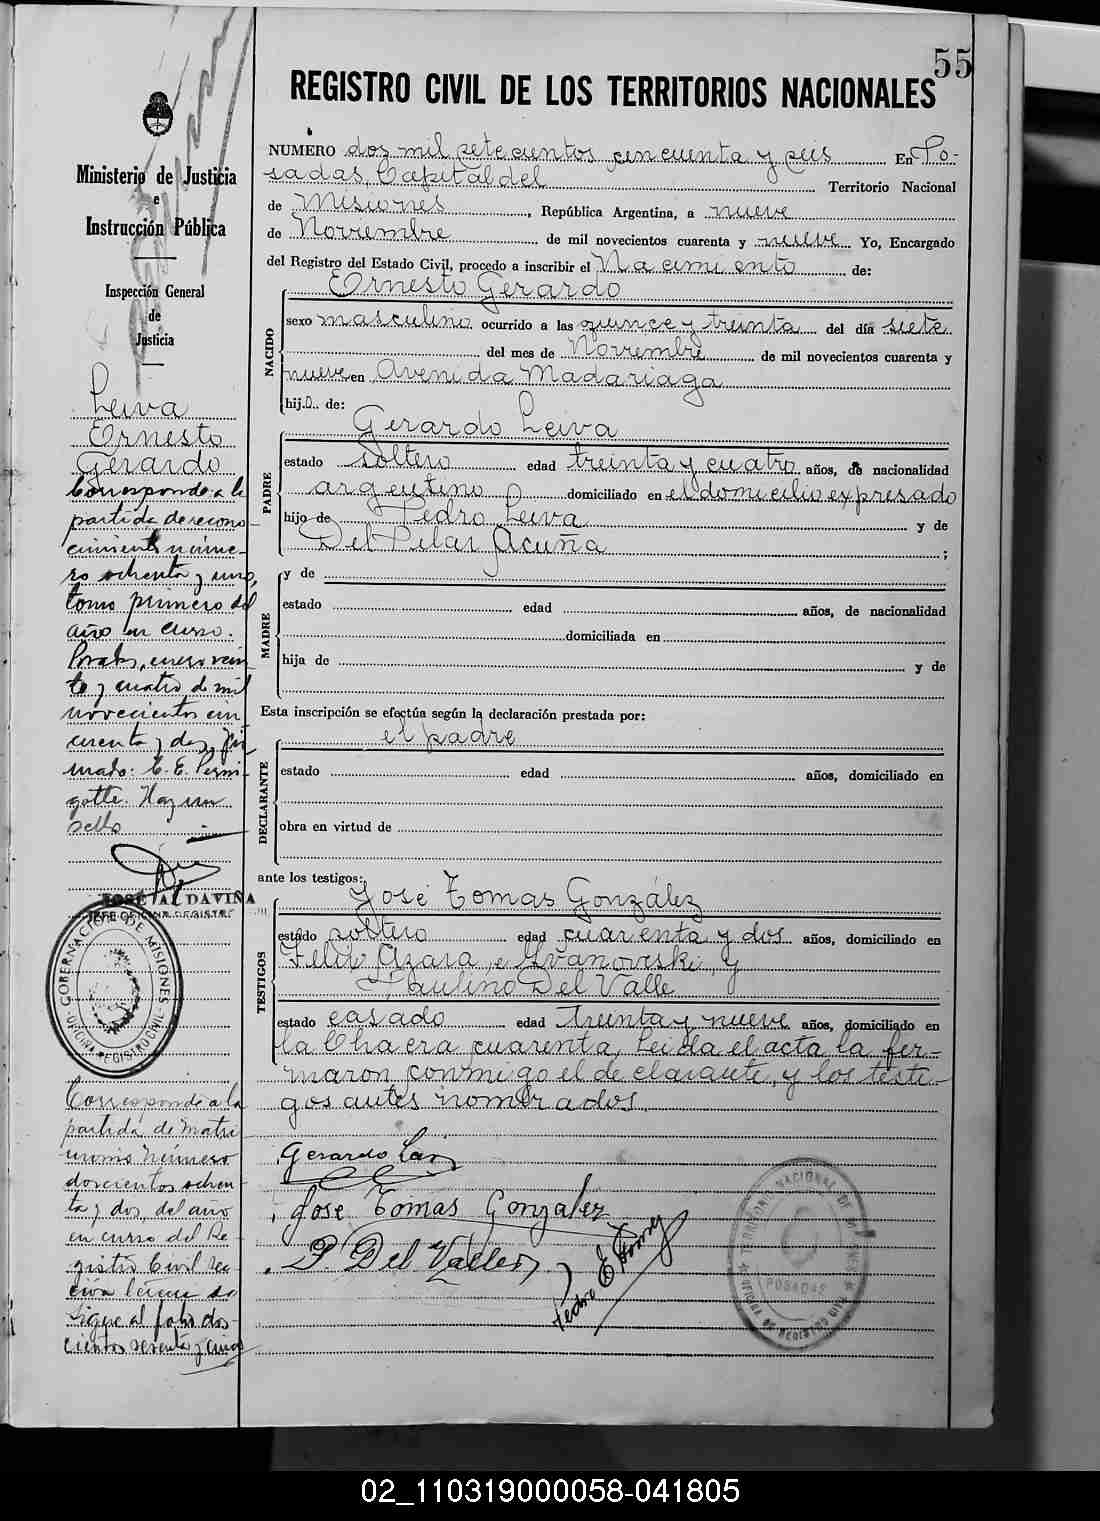 55
REGISTRO CIVIL DE LOS TERRITORIOS NACIONALES
Ministerio de Justicia
e
Instrucción Pública
Inspección General
de
Justicia
Leiva
Ernesto
Gerardo
Corresponde a la
partida de recono-
cimiento núme-
ro ochenta y uno,
tomo primero del
año en curso.
enero vein
te y cuatro de mil
novecientos cin
cuenta y dos, fir
mado: E. E. Perni-
gotte. Hay un
sello
JOSÉ A. DAVIÑA
JEFE OFICINA REGISTRAL
GOBERNACION DE MISIONES
OFICINA REGISTRO CIVIL
Corresponde a la
partida de matri
monio número
doscientos ochen
ta y dos, del año
en curso del Re
gistro Civil sec
ción
Sigue al folio dos
cientos setenta y cinco
NUMERO dos mil setecientos cincuenta y seis En Po-
sadas, Capital del Territorio Nacional
de Misiones, República Argentina, a nueve
de Noviembre de mil novecientos cuarenta y nueve Yo, Encargado
del Registro del Estado Civil, procedo a inscribir el Nacimiento de:
NACIDO
Ernesto Gerardo
sexo masculino ocurrido a las quince y treinta del día siete
del mes de Noviembre de mil novecientos cuarenta y
nueve en Avenida Madariaga
hijo de:
PADRE
Gerardo Leiva
estado soltero edad treinta y cuatro años, de nacionalidad
argentino domiciliado en el domicilio expresado
hijo de Pedro Leiva y de
Del Pilar Acuña ;
MADRE
y de
estado edad años, de nacionalidad
domiciliada en
hija de y de
Esta inscripción se efectúa según la declaración prestada por:
el padre
DECLARANTE
estado edad años, domiciliado en
obra en virtud de
ante los testigos:
TESTIGOS
José Tomas González
estado soltero edad cuarenta y dos años, domiciliado en
Felix Azara, e Ivanovski, y
Paulino Del Valle
estado casado edad treinta y nueve años, domiciliado en
la Chacra cuarenta, Leida el acta la fir-
maron conmigo el declarante, y los testi-
gos antes nombrados.
Gerardo Leiva
José Tomas Gonzalez
P. Del Valle
Pedro E.
TERRITORIO NACIONAL DE MISIONES
POSADAS
OFICINA DE REGISTRO CIVIL
02_110319000058-041805